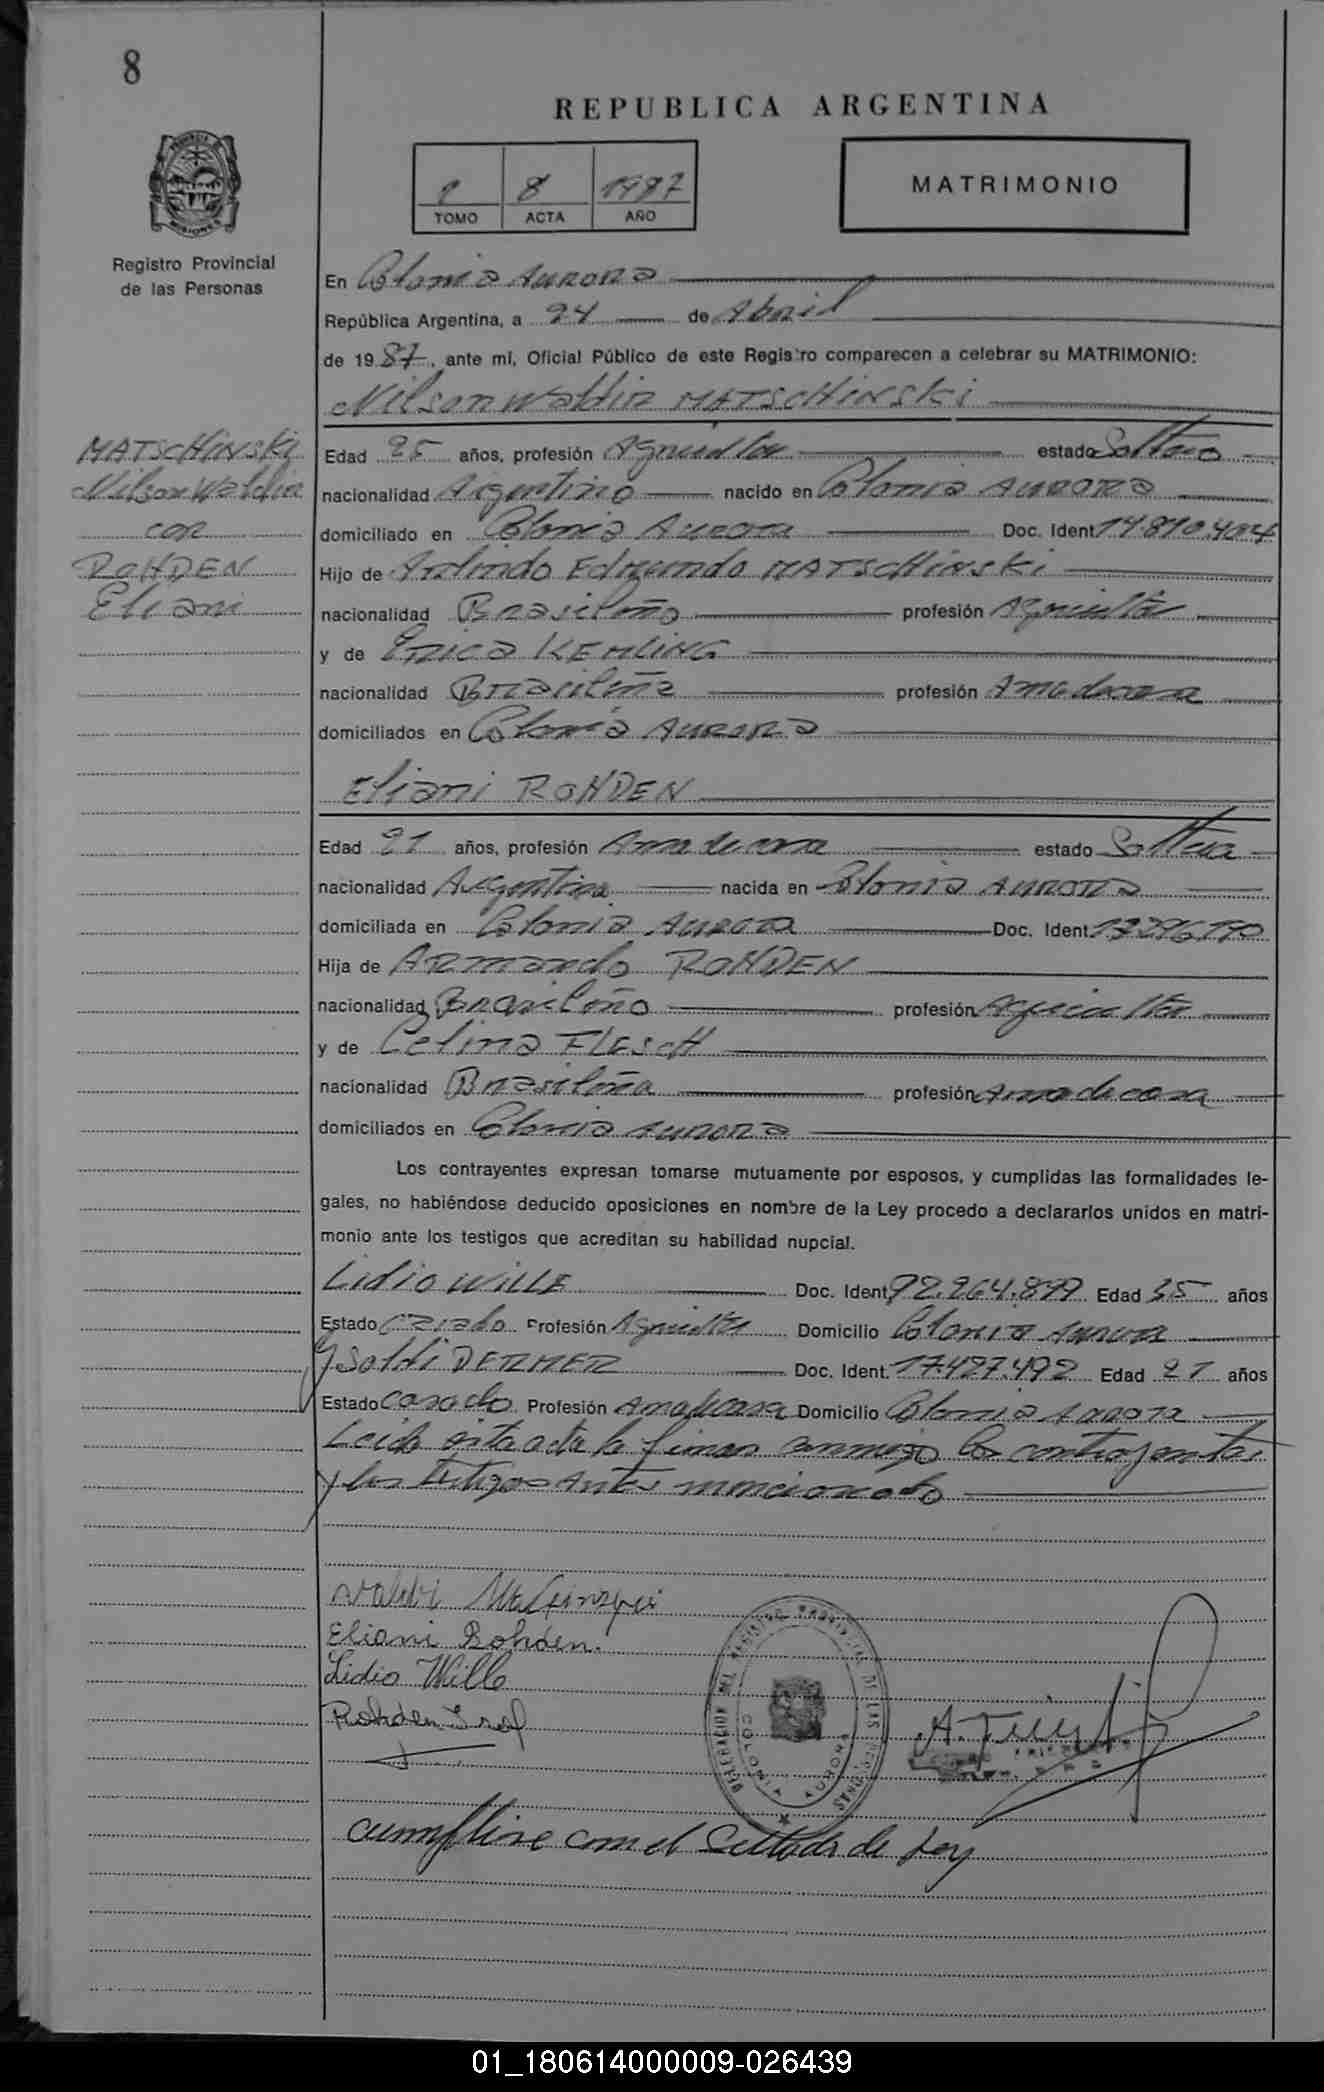 8
REPUBLICA ARGENTINA
1 8 1987
TOMO ACTA AÑO
MATRIMONIO
Registro Provincial
de las Personas
En Colonia Aurora
República Argentina, a 24 de Abril
de 1987, ante mí, Oficial Público de este Registro comparecen a celebrar su MATRIMONIO:
Nilson Waldir MATSCHINSKI
MATSCHINSKI
Nilson Waldir
con
ROHDEN
Eliani
Edad 25 años, profesión Agricultor estado Soltero
nacionalidad Argentino nacido en Colonia Aurora
domiciliado en Colonia Aurora Doc. Ident. 14.810.404
Hijo de Arlindo Edmundo MATSCHINSKI
nacionalidad Brasileño profesión Agricultor
y de Erica KEHLING
nacionalidad Brasileña profesión Amadecasa
domiciliados en Colonia Aurora
Eliani ROHDEN
Edad 21 años, profesión Ama de casa estado Soltera
nacionalidad Argentina nacida en Colonia Aurora
domiciliada en Colonia Aurora Doc. Ident.
Hija de Armando ROHDEN
nacionalidad Brasileño profesión Agricultor
y de Celina FLESCH
nacionalidad Brasileña profesión Ama de casa
domiciliados en Colonia Aurora
Los contrayentes expresan tomarse mutuamente por esposos, y cumplidas las formalidades le-
gales, no habiéndose deducido oposiciones en nombre de la Ley procedo a declararlos unidos en matri-
monio ante los testigos que acreditan su habilidad nupcial.
Lidio WILLE Doc. Ident. Edad 35 años
Estado casado Profesión Agricultor Domicilio Colonia Aurora
DERMER Doc. Ident. 17.427.492 Edad 21 años
Estado casado Profesión Amadecasa Domicilio Colonia Aurora
Leida esta acta la firman conmigo los contrayentes
y los testigos antes mencionado
Eliani Rohden.
Lidio Wille
Rohden
DELEGACION DEL REGISTRO PROVINCIAL DE LAS PERSONAS
COLONIA AURORA
cumplire con el Sellado de Ley
01_180614000009-026439